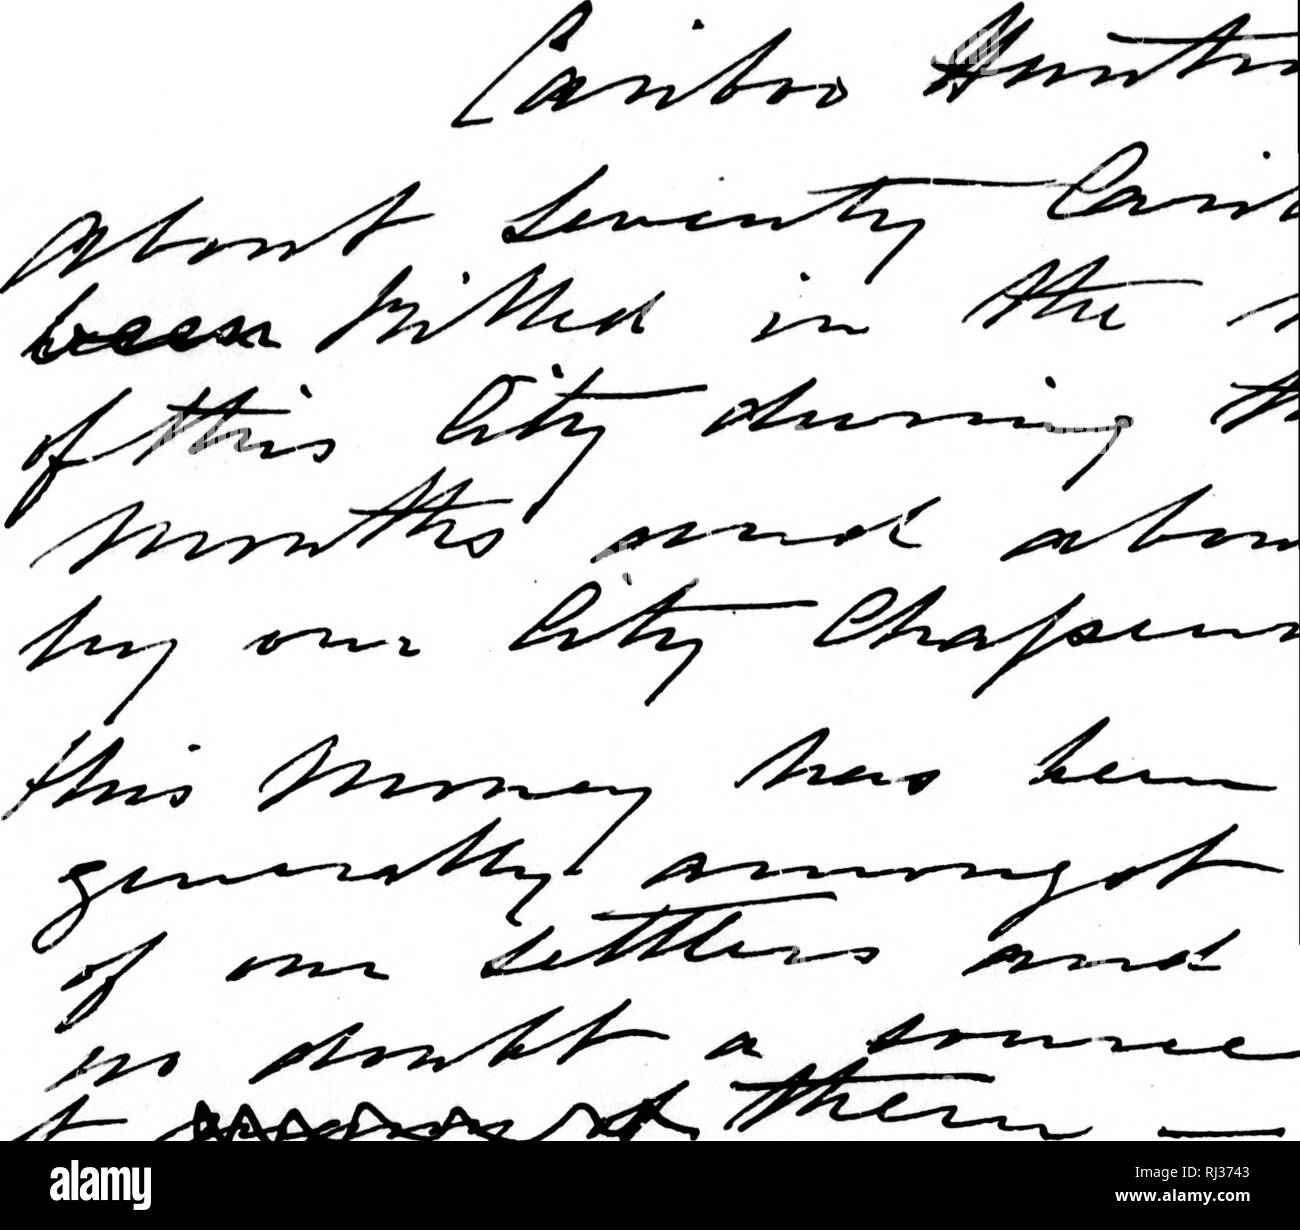 Cariboo Huntin
About seventy Carib
been killed in the
of this City during th
months and abou
by our City Chapeur
this money has been
generally amongst
of our settlers and
no doubt a source
t them —
alamy
Image ID: RJ3743
www.alamy.com